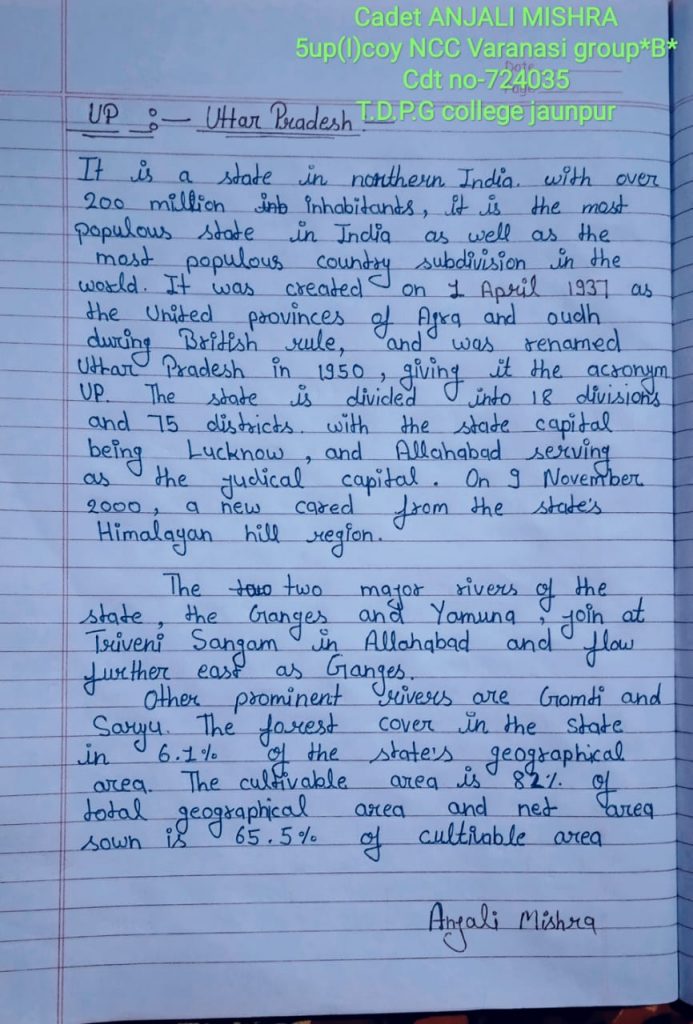 Cadet ANJALI MISHRA
5up(I)coy NCC Varanasi group*B*
Cdt no-724035
T.D.P.G college jaunpur
Date
UP :- Uttar Pradesh :-
It is a state in northern India. with over
200 million inb inhabitants, it is the most
populous state in India as well as the
most populous country subdivision in the
world. It was created on 1 April 1937 as
the United provinces of Agra and oudh
during British rule, and was renamed
Uttar Pradesh in 1950, giving it the acronym
UP. The state is divided into 18 divisions
and 75 districts. with the state capital
being Lucknow, and Allahabad serving
as the judical capital. On 9 November
2000, a new cared from the state's
Himalayan hill region.
The two major rivers of the
state, the Ganges and Yamuna, join at
Triveni Sangam in Allahabad and flow
further east as Ganges.
Other prominent rivers are Gomti and
Saryu. The forest cover in the state
in 6.1% of the state's geographical
area. The cultivable area is 82% of
total geographical area and net area
sown is 65.5% of cultivable area
Anjali Mishra